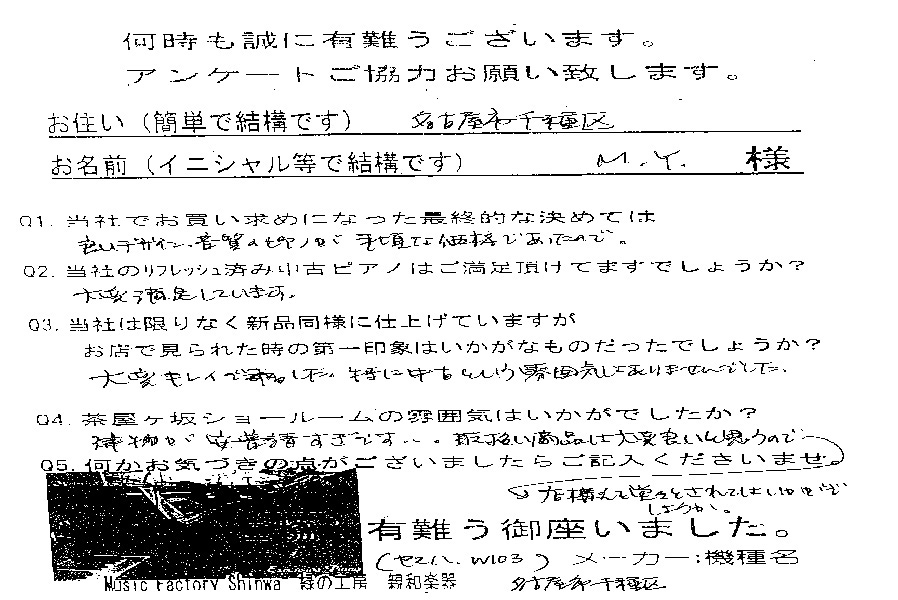 何時も誠に有難うございます。
アンケートご協力お願い致します。
お住い（簡単で結構です） 名古屋市千種区
お名前（イニシャル等で結構です） M.Y. 様
Q1. 当社でお買い求めになった最終的な決めては
良いデザイン、音質のピアノが手頃な価格であったので。
Q2. 当社のリフレッシュ済み中古ピアノはご満足頂けてますでしょうか？
大変満足しています。
Q3. 当社は限りなく新品同様に仕上げていますが
お店で見られた時の第一印象はいかがなものだったでしょうか？
大変キレイで 特に中古という雰囲気しありませんでした。
Q4. 茶屋ヶ坂ショールームの雰囲気はいかがでしたか？
建物が すぎです 商品は大変良いと思うので
Q5. 何かお気づきの点がございましたらご記入くださいませ。
堂々とされてはいかがで
しょうか。
有難う御座いました。
(ヤマハ W103) メーカー：機種名
Music Factory Shinwa 緑の工房 親和楽器 名古屋市千種区